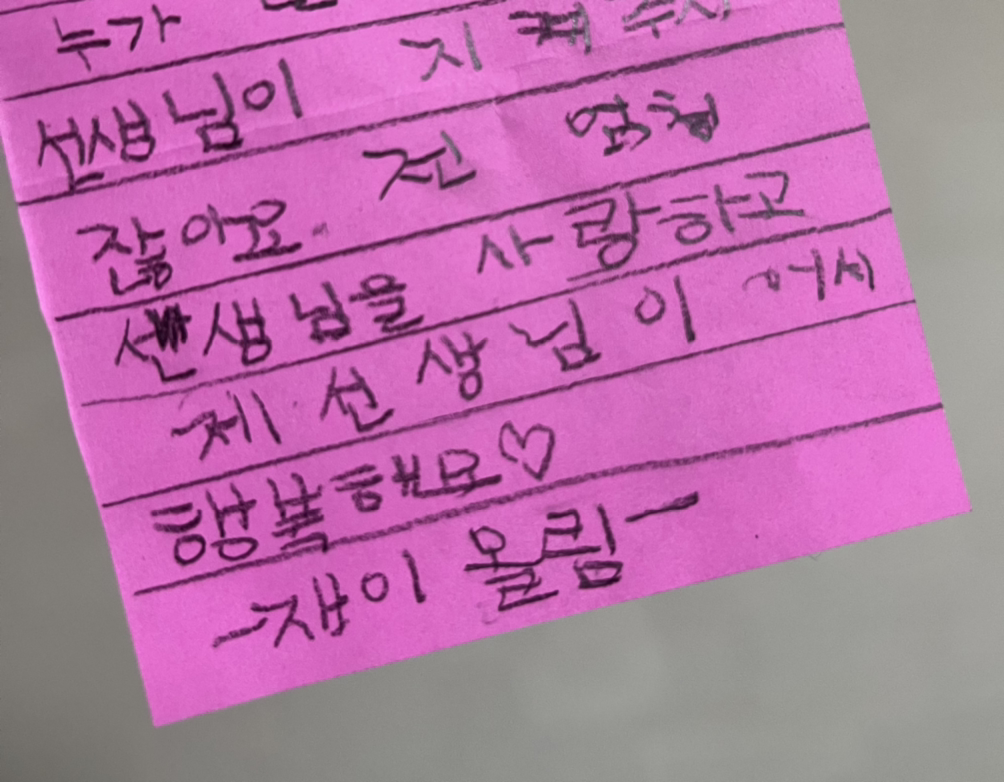 누가
선생님이 지켜주시
잖아요. 전 엄청
선생님을 사랑하고
제 선생님이 어서
행복해요♡
-재이 올림-